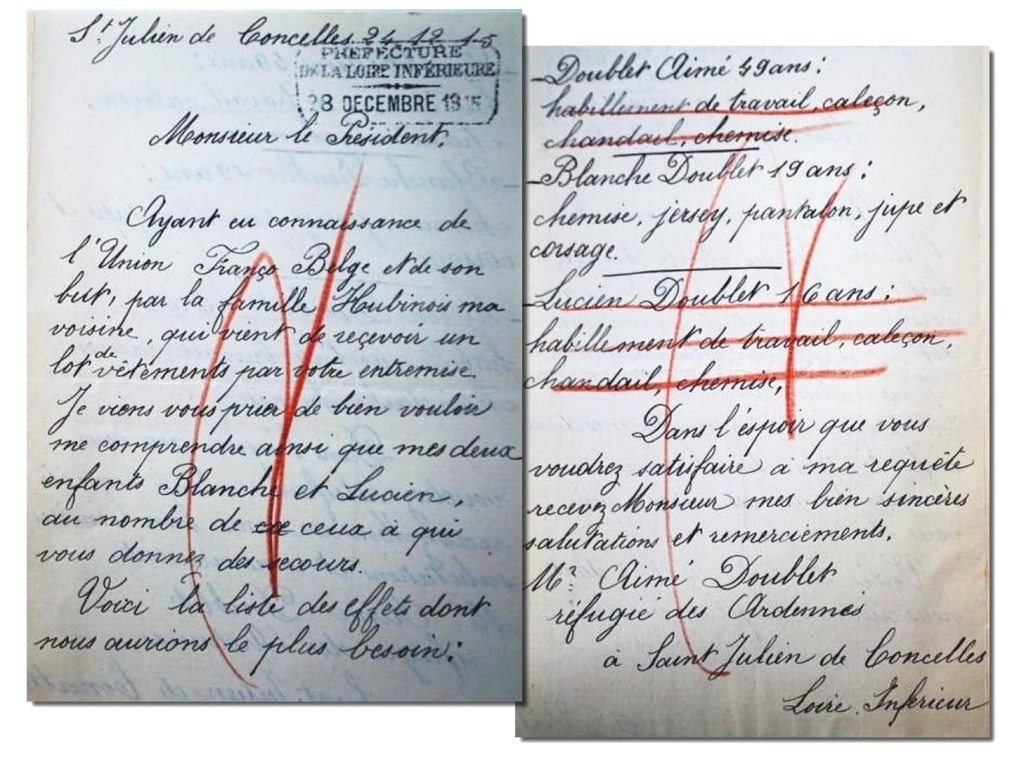 St Julien de Concelles 24 12 15
PREFECTURE
DE LA LOIRE INFÉRIEURE
28 DECEMBRE 1915
Monsieur le Président,
Ayant eu connaissance de
l'Union Franço Belge et de son
but, par la famille Hubinois ma
voisine, qui vient de reçevoir un
lot de vêtements par votre entremise.
Je viens vous prier de bien vouloir
me comprendre ainsi que mes deux
enfants Blanche et Lucien,
au nombre de ceux à qui
vous donnez des secours.
Voici la liste des effets dont
nous aurions le plus besoin:
- Doublet Aimé 49 ans:
habillement de travail, caleçon,
chandail, chemise.
- Blanche Doublet 19 ans:
chemise, jersey, pantalon, jupe et
corsage.
- Lucien Doublet 16 ans:
habillement de travail, caleçon,
chandail, chemise,
Dans l'éspoir que vous
voudrez satisfaire à ma requête
recevez Monsieur mes bien sincères
salutations et remerciements.
Mr Aimé Doublet
réfugié des Ardennes
à Saint Julien de Concelles
Loire Inférieur